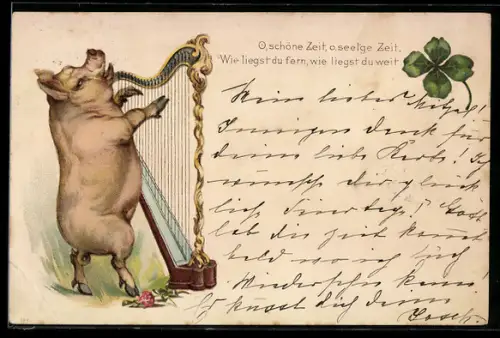 O, schöne Zeit, o, seelge Zeit,
Wie liegst du fern, wie liegst du weit
Mein lieber
Innigen Dank für
deine liebe Karte! Ich
wünsch dir glück
liche
die Zeit kommt
bald wo ich
Wiedersehen kann
Es küsst dich deine